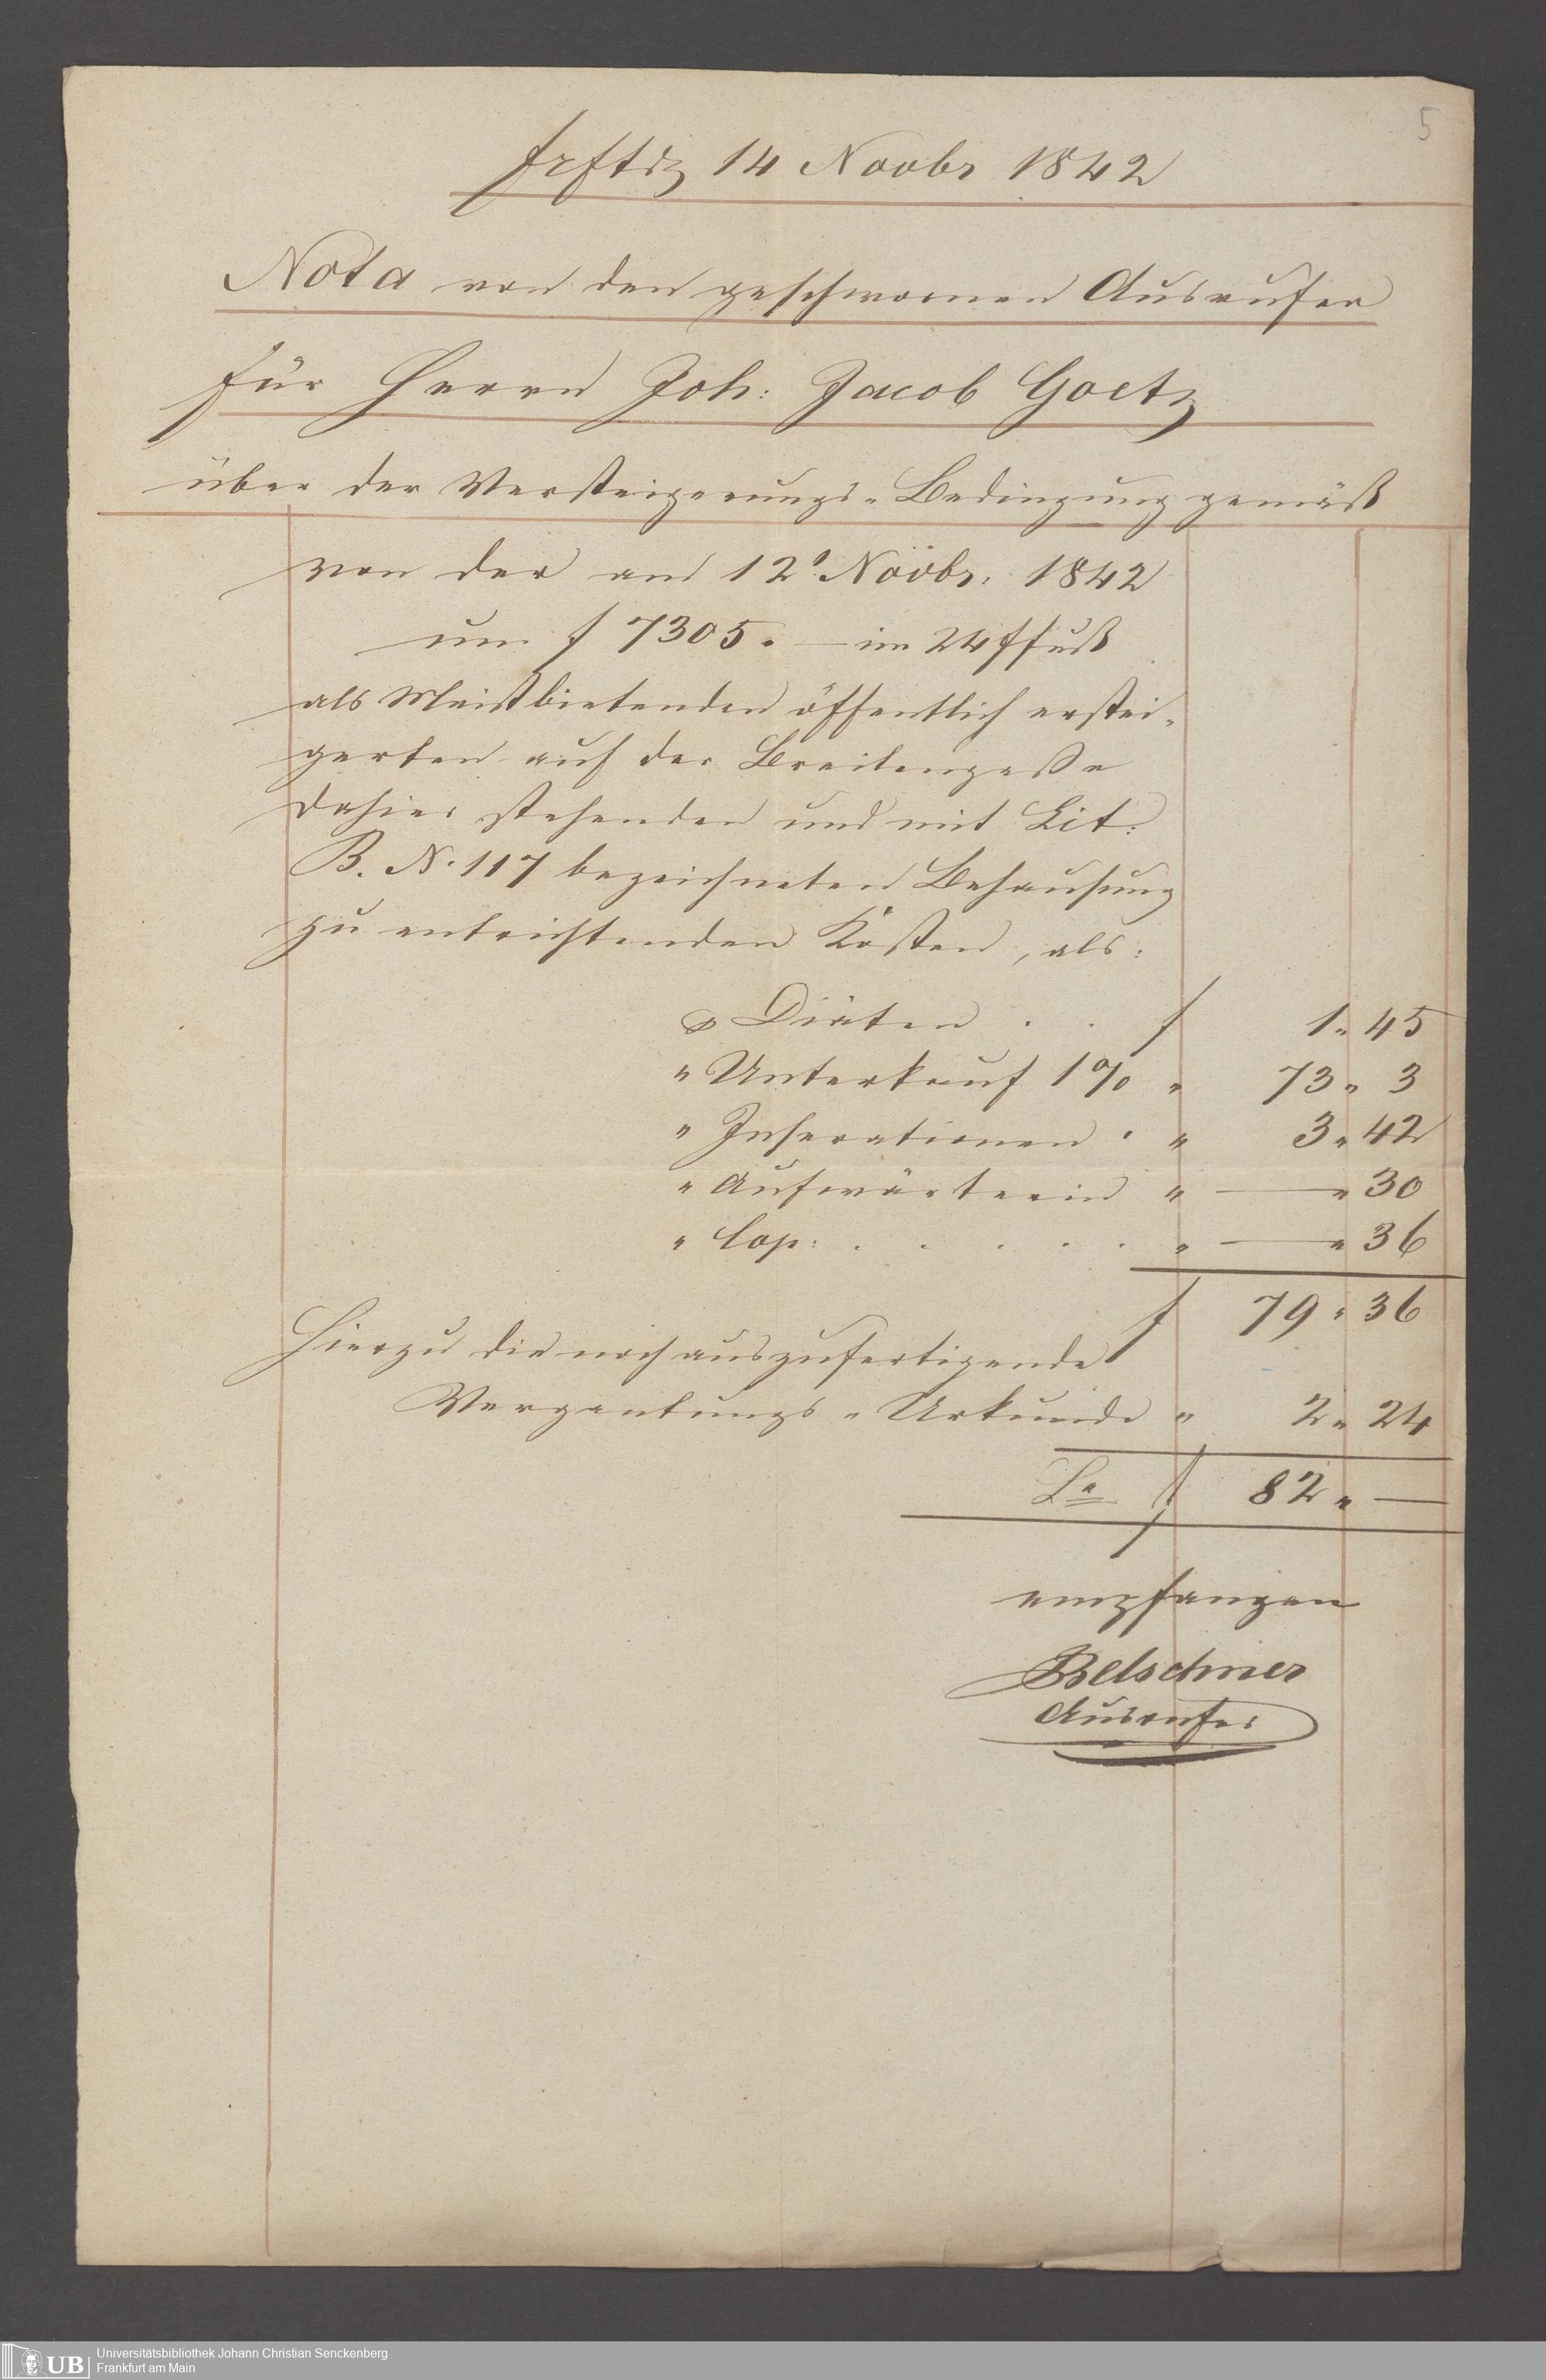 5
Frftdz 14 Novbr 1842
Nota von den geschwornen Ausrufer
für Herrn Joh: Jacob Goetz
über der Versteigerungs-Bedingung gemäß
von der am 12t Novbr. 1842
um f 7305. — im 24 f fuß
als Meistbietenden öffentlich erstei-
gerten auf der Breitengaße
dahier stehenden und mit Lit:
B. N. 117 bezeichneten Behausung
zu entrichtenden Kosten, als:
Diäten . . f 1 " 45
" Unterkauf 1% " 73 " 3
" Inserationen . " 3 " 42
" Aufwärterin " — " 30
" Cop: . . . . . " — " 36
f 79 " 36
Hierzu die noch auszufertigende
Vergantungs-Urkunde " 2 " 24
Sa f 82 " —
empfangen
Belschner
Ausrufer
UB Universitätsbibliothek Johann Christian Senckenberg
Frankfurt am Main